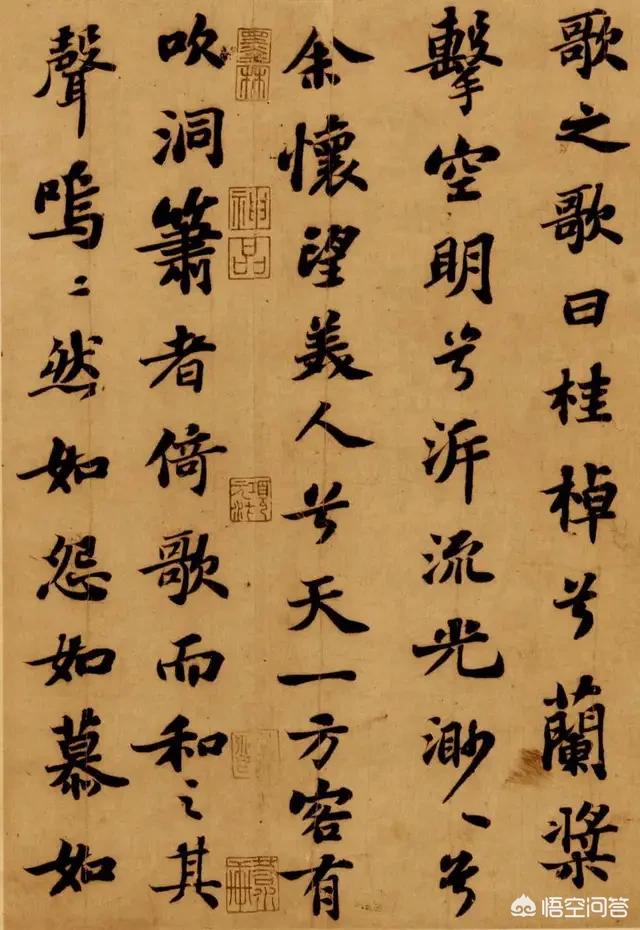 歌之歌曰桂棹兮蘭槳
擊空明兮泝流光渺〻兮
余懷望美人兮天一方客有
吹洞簫者倚歌而和之其
聲嗚〻然如怨如慕如
墨林
神品
悟空问答